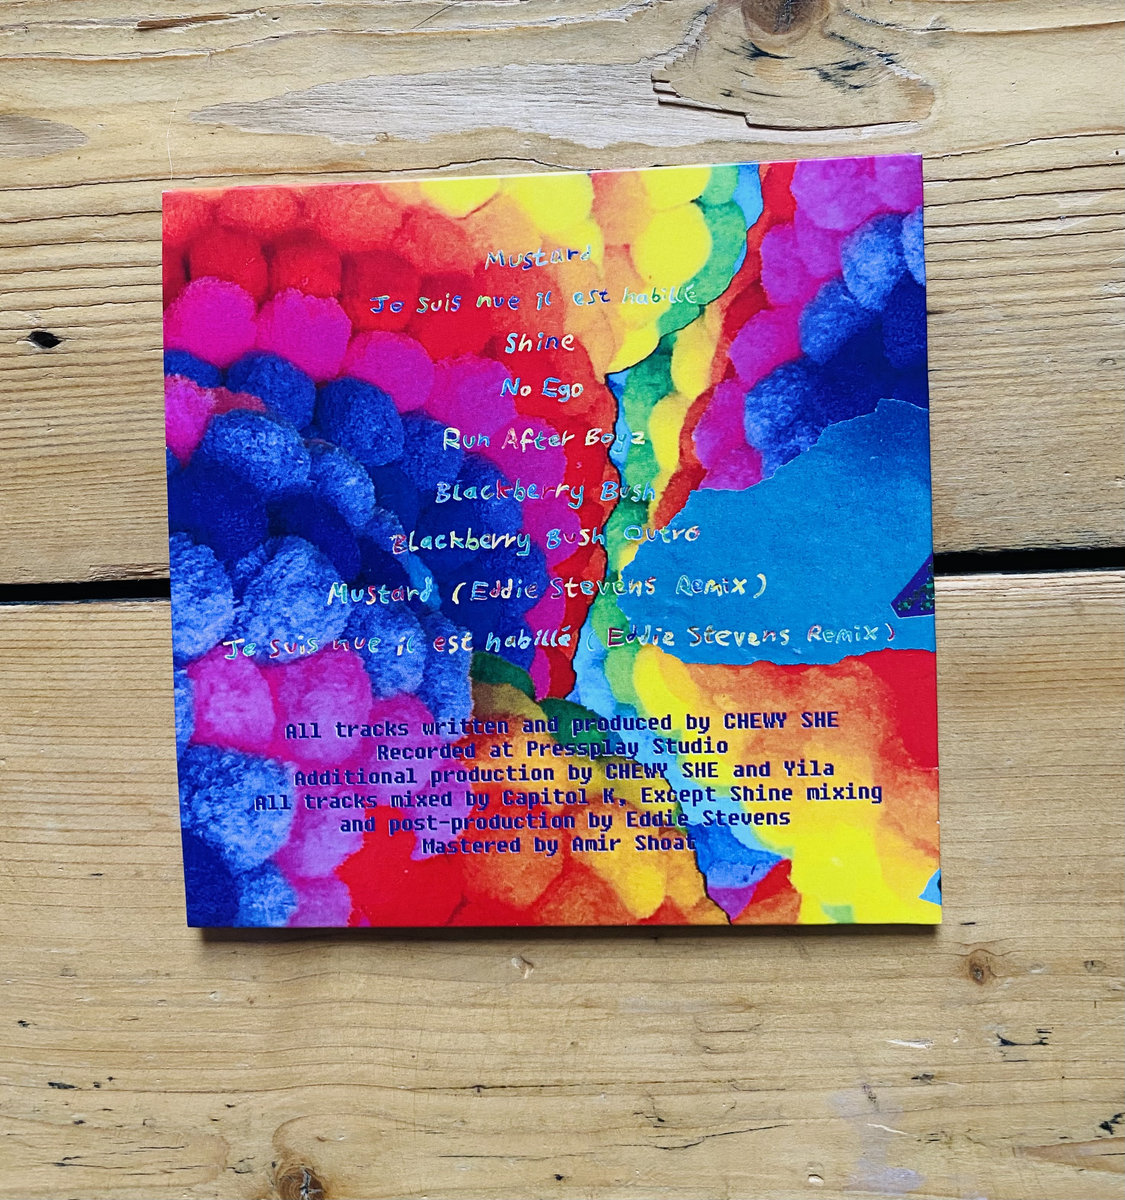 Mustard
Je suis nue il est habillé
Shine
No Ego
Run After Boyz
Blackberry Bush
Blackberry Bush Outro
Mustard (Eddie Stevens Remix)
Je suis nue il est habillé (Eddie Stevens Remix)
All tracks written and produced by CHEWY SHE
Recorded at Pressplay Studio
Additional production by CHEWY SHE and Yila
All tracks mixed by Capitol K, Except Shine mixing
and post-production by Eddie Stevens
Mastered by Amir Shoat